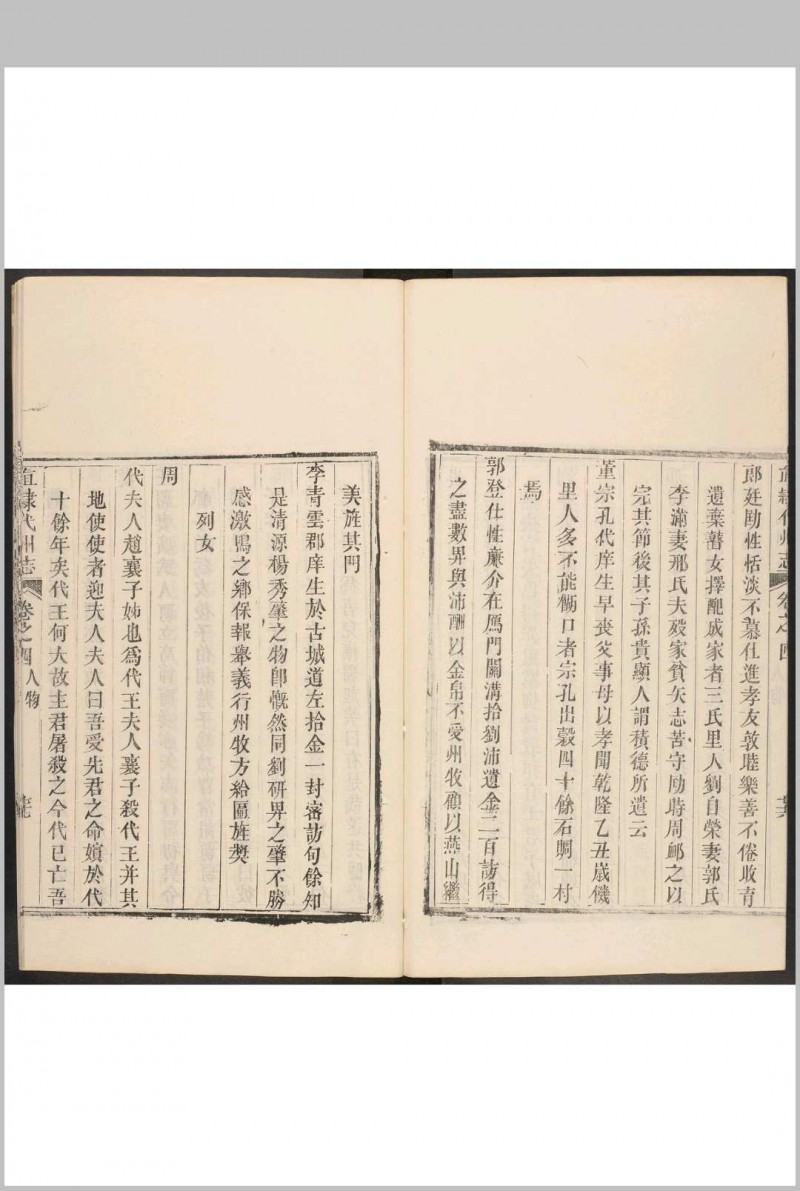 直隸代州志
卷之四
郎廷勛性恬淡不慕仕進孝友敦睦樂善不倦收育
遺棄瞽女擇配成家者三氏里人劉自榮妻郭氏
李滿妻邢氏夫歿家貧矢志苦守勛時周卹之以
完其節後其子孫貴顯人謂積德所遺云
董宗孔代庠生早喪父事母以孝聞乾隆乙丑歲饑
里人多不能餬口者宗孔出穀四十餘石賙一村
焉
郭登仕性廉介在鴈門關溝拾劉沛遺金二百訪得
之盡數畀與沛酬以金帛不愛州牧顧以燕山繼
美旌其門
李青雲郡庠生於古城道左拾金一封密訪旬餘知
是清源楊秀肇之物卽慨然同劉研畀之肇不勝
感激鳴之鄉保報舉義行州牧方給匾旌獎
列女
周
代夫人趙襄子姊也為代王夫人襄子殺代王并其
地使使者迎夫人夫人曰吾愛先君之命嬪於代
十餘年矣代王何大故主君屠殺之今代已亡吾
直隸代州志
卷之四人物